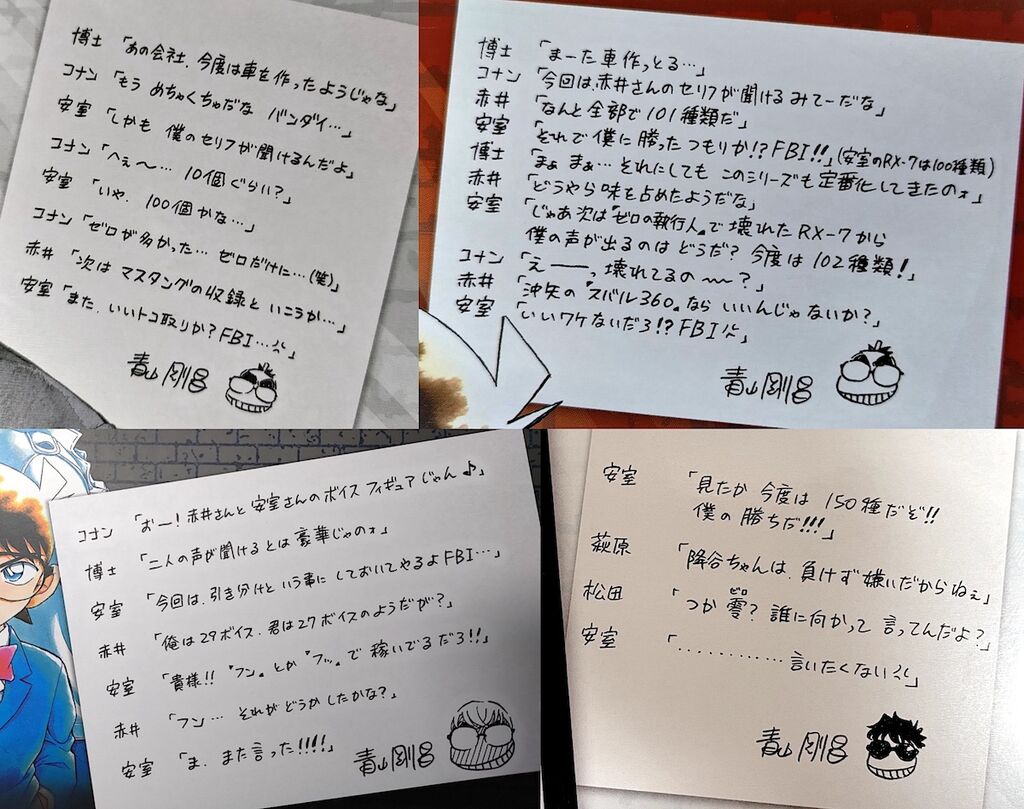 博士 「あの会社、今度は車を作ったようじゃな」
コナン 「もう めちゃくちゃだな バンダイ…」
安室 「しかも 僕のセリフが聞けるんだよ」
コナン 「へぇ〜… 10個ぐらい?」
安室 「いや、100個かな…」
コナン 「ゼロが多かった… ゼロだけに…(笑)」
赤井 「次は マスタングの収録と いこうか…」
安室 「また、いいトコ取りか?FBI…」
青山剛昌
博士 「まーた車作っとる…」
コナン 「今回は、赤井さんのセリフが聞けるみてーだな」
赤井 「なんと全部で101種類だ」
安室 「それで僕に勝ったつもりか!?FBI!!」(安室のRX-7は100種類)
博士 「まぁ まぁ… それにしても このシリーズも定番化してきたのォ」
赤井 「どうやら味を占めたようだな」
安室 「じゃあ次は〝ゼロの執行人〟で 壊れたRX-7から
僕の声が出るのは どうだ? 今度は102種類!」
コナン 「えーーっ、壊れてるの〜〜?」
赤井 「沖矢の〝スバル360〟なら いいんじゃないか?」
安室 「いいワケないだろ!?FBI」
青山剛昌
コナン 「おー!赤井さんと安室さんのボイスフィギュアじゃん♪」
博士 「二人の声が聞けるとは豪華じゃのォ」
安室 「今回は、引き分けという事に しておいてやるよFBI…」
赤井 「俺は29ボイス、君は27ボイスのようだが?」
安室 「貴様!!〝フン〟とか〝フッ〟で稼いでるだろ!!」
赤井 「フン… それがどうかしたかな?」
安室 「ま、また言った!!!!」
青山剛昌
安室 「見たか 今度は 150種だぞ!!
僕の勝ちだ!!!」
萩原 「降谷ちゃんは、負けず嫌いだからねぇ」
松田 「つか 零(ゼロ)? 誰に向かって 言ってんだよ?」
安室 「…………言いたくない」
青山剛昌